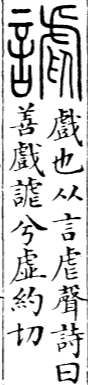 謔
戲也从言虐聲詩曰
善戲謔兮虛約切